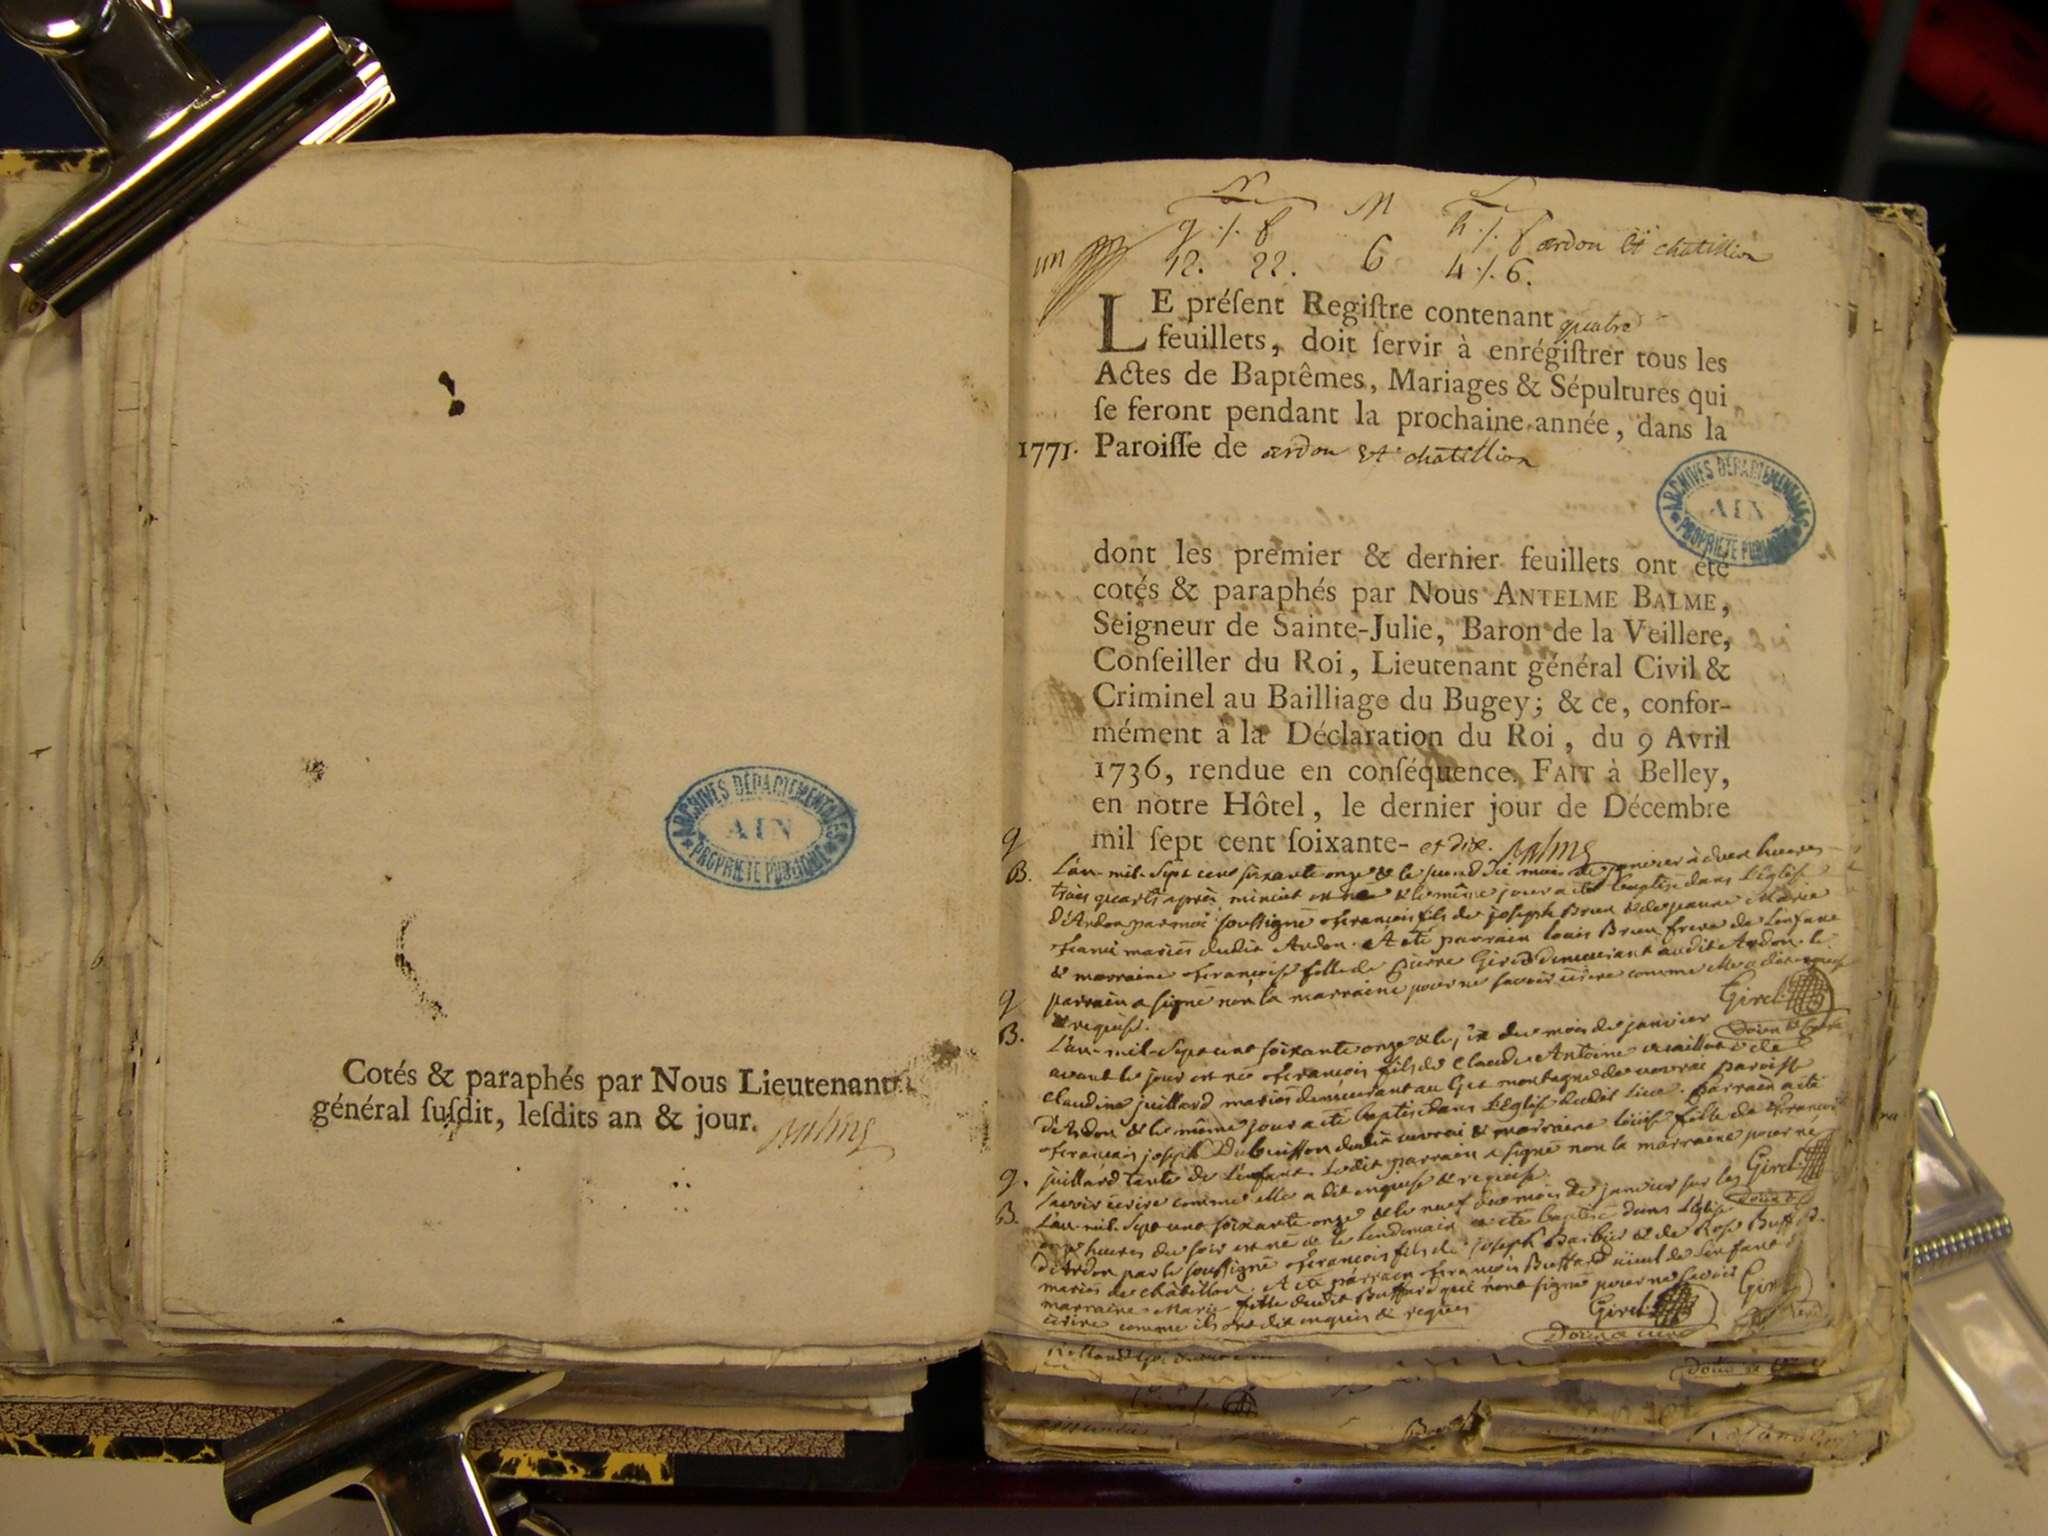 ARCHIVES DÉPARTEMENTALES
AIN
PROPRIÉTÉ PUBLIQUE
Cotés & paraphés par Nous Lieutenant
général ſuſdit, leſdits an & jour. Balme
N M
g ./. f h ./. f ardon et chatillion
un 12. 22. 6 4 ./. 6.
LE préſent Regiſtre contenant quatre
feuillets, doit ſervir à enrégiſtrer tous les
Actes de Baptêmes, Mariages & Sépultures qui
ſe feront pendant la prochaine année, dans la
1771. Paroiſſe de ardon et chatillion
ARCHIVES DÉPARTEMENTALES
AIN
PROPRIÉTÉ PUBLIQUE
dont les premier & dernier feuillets ont été
cotés & paraphés par Nous ANTELME BALME,
Seigneur de Sainte-Julie, Baron de la Veillere,
Conſeiller du Roi, Lieutenant général Civil &
Criminel au Bailliage du Bugey; & ce, confor-
mément à la Déclaration du Roi, du 9 Avril
1736, rendue en conſéquence. FAIT à Belley,
en notre Hôtel, le dernier jour de Décembre
mil ſept cent ſoixante- et dix. Balme
g
B. L'an mil sept cent soixante onze & le second du mois de janvier à deux heures
trois quarts après minuit est né & le même jour a été baptisé dans l'Eglise
d'Ardon par moi soussigné francois fils de joseph Brun & de jeanne Marie
mariés dudit Ardon. A été parrain louis Brun frere de l'enfant
& marraine francoise fille de pierre Girod demeurant audit Ardon. le
g parrain a signé non la marraine pour ne savoir écrire comme elle a dit enquise
& requise. Girel
B. L'an mil sept cent soixante onze & le six du mois de janvier
avant le jour est né francois fils de Claude Antoine &
claudine juillard mariés demeurant au montagne de vovrai paroisse
d'Ardon & le même jour a été baptisé dans l'Eglise dudit lieu. parrain a été
francois joseph Dubuisson dudit vovrai & marraine louise fille de francois
g. juillard tante de l'enfant. ledit parrain a signé non la marraine pour ne
savoir écrire comme elle a dit enquise & requise. Girel
B. L'an mil sept cent soixante onze & le neuf du mois de janvier sur les
onze heures du soir est né & le lendemain a été baptisé dans l'Eglise
d'Ardon par le soussigné francois fils de joseph Barbier & de Rose Buffard
mariés de châtillon. A été parrain francois Buffard aieul de l'enfant &
marraine Marie fille dudit Buffard qui n'ont signé pour ne savoir
écrire comme ils ont dit enquis & requis Girel Girel